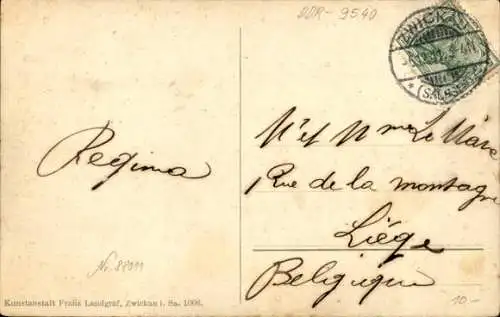 DDR-9540
ZWICKAU
(SACHSEN)
Mr et Mme Le Maire
Regima
Rue de la montagne
Liége
Belgique
Kunstanstalt Franz Landgraf, Zwickau i. Sa. 1906.
10.-